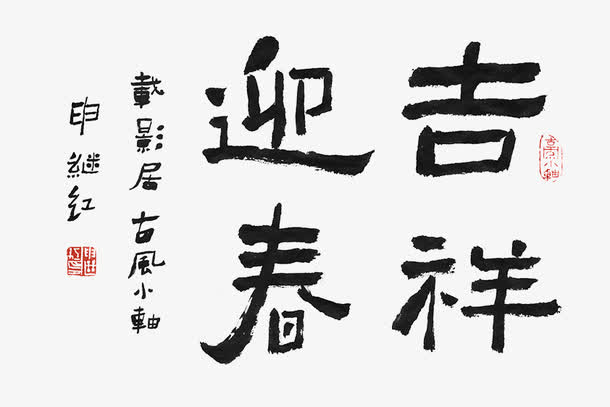 吉祥
迎春
載影居古風小軸
申继红